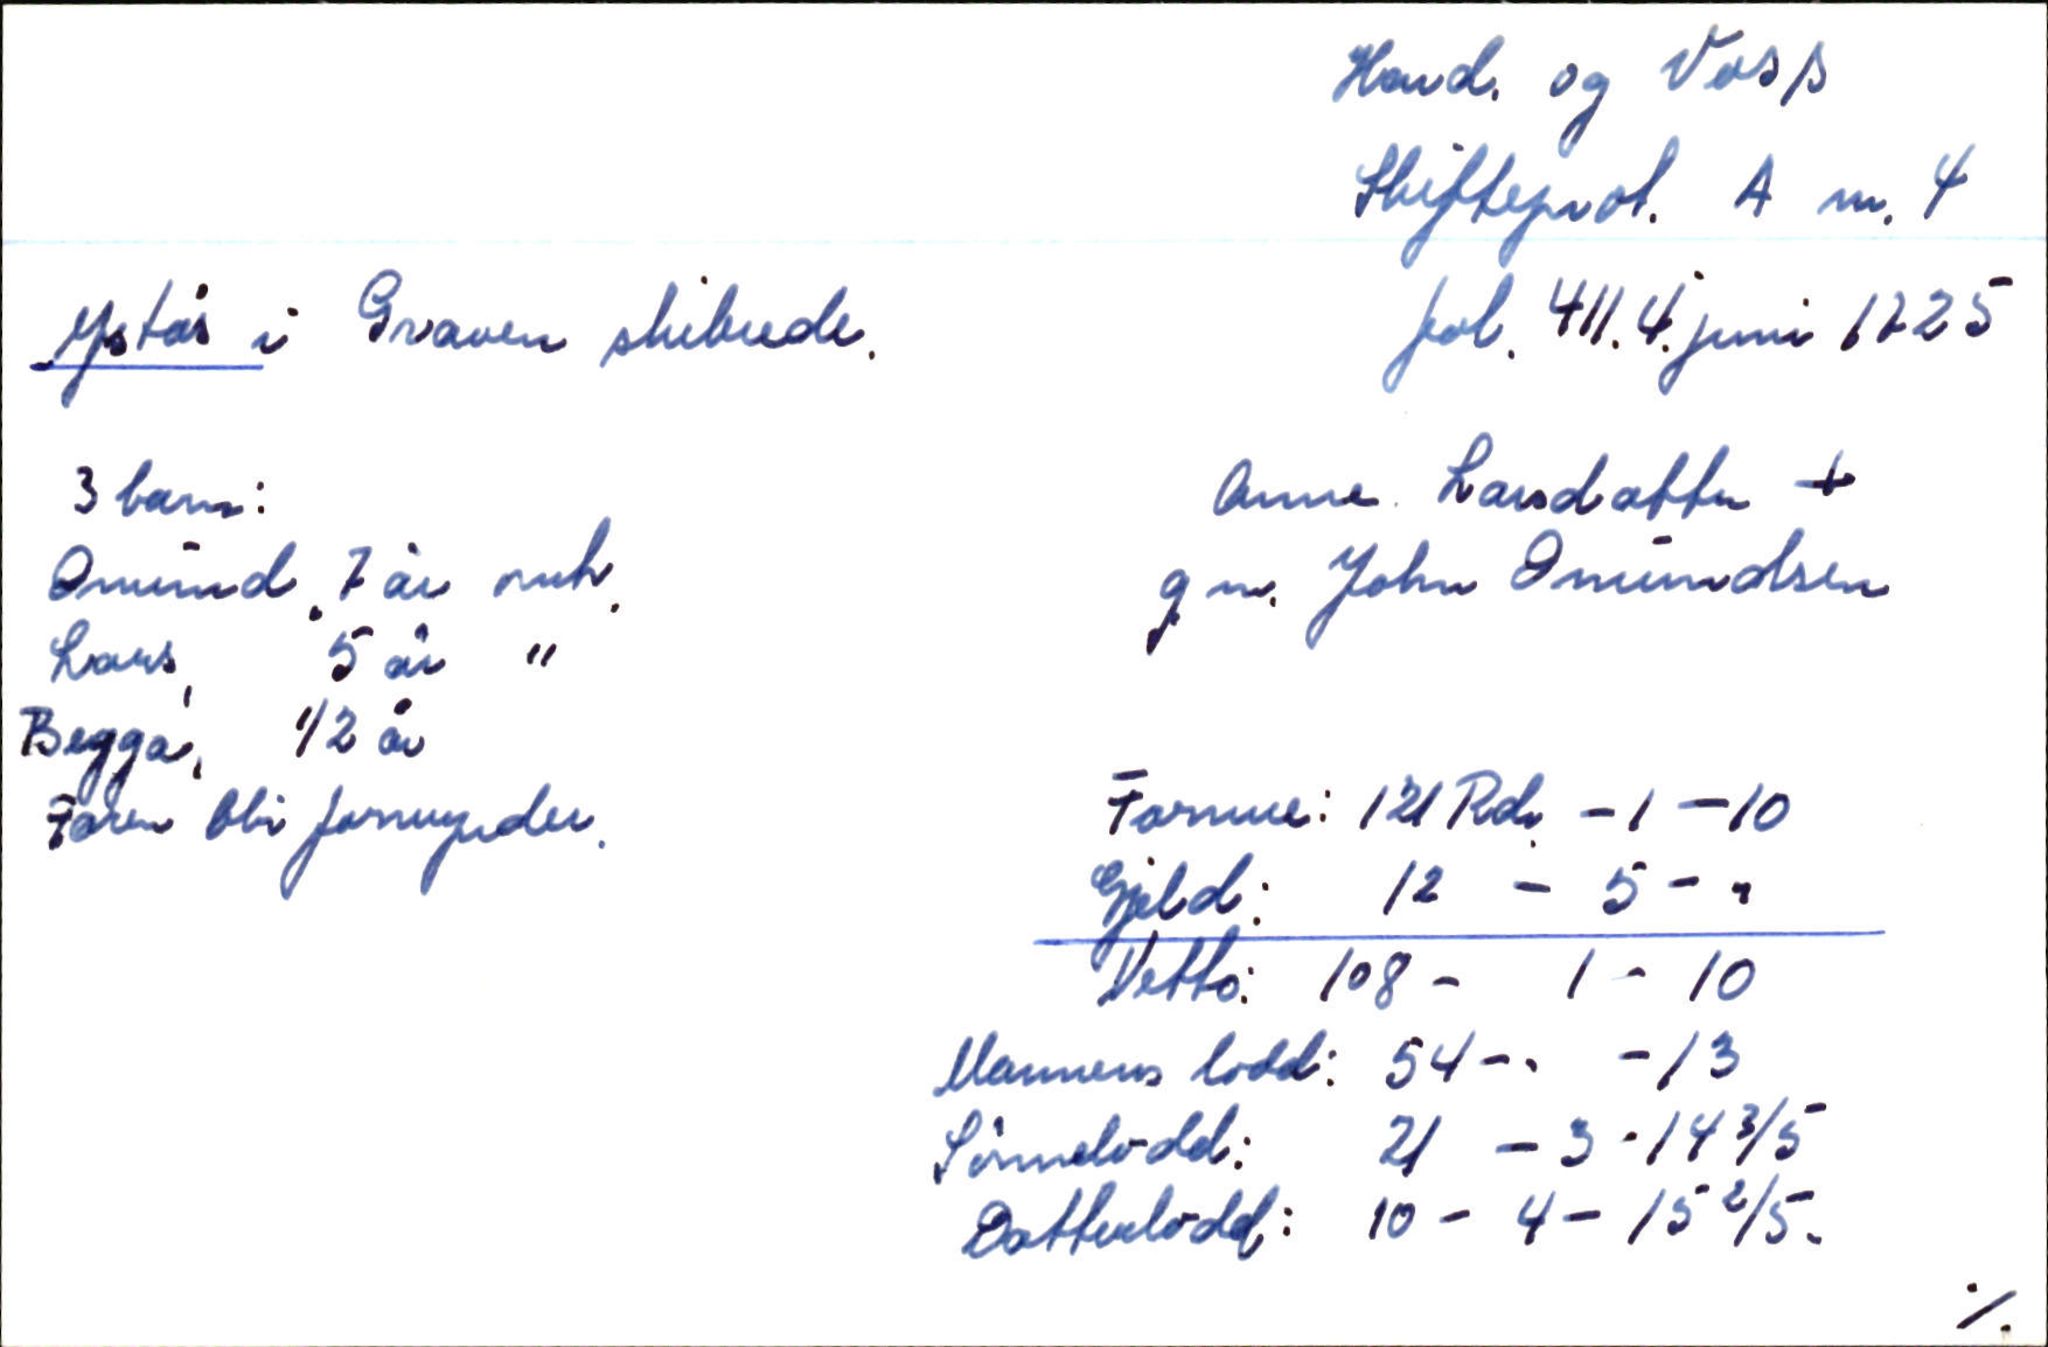 Hard. og Voss
Skifteprot. A nr. 4
Ystås i Graven skibrede.
fol. 411. 4. juni 1725
3 barn:
Omund, 7 år omtr.
Lars, 5 år "
Begga, 1/2 år
Faren blir formynder.
Anne Larsdatter +
g m. John Omundsen
Formue: 121 Rdr. - 1 - 10
Gjeld: 12 - 5 - "
Netto: 108 - 1 - 10
Mannens lodd: 54 - " - 13
Sønnelodd: 21 - 3 - 14 3/5
Datterlodd: 10 - 4 - 15 2/5.
./.